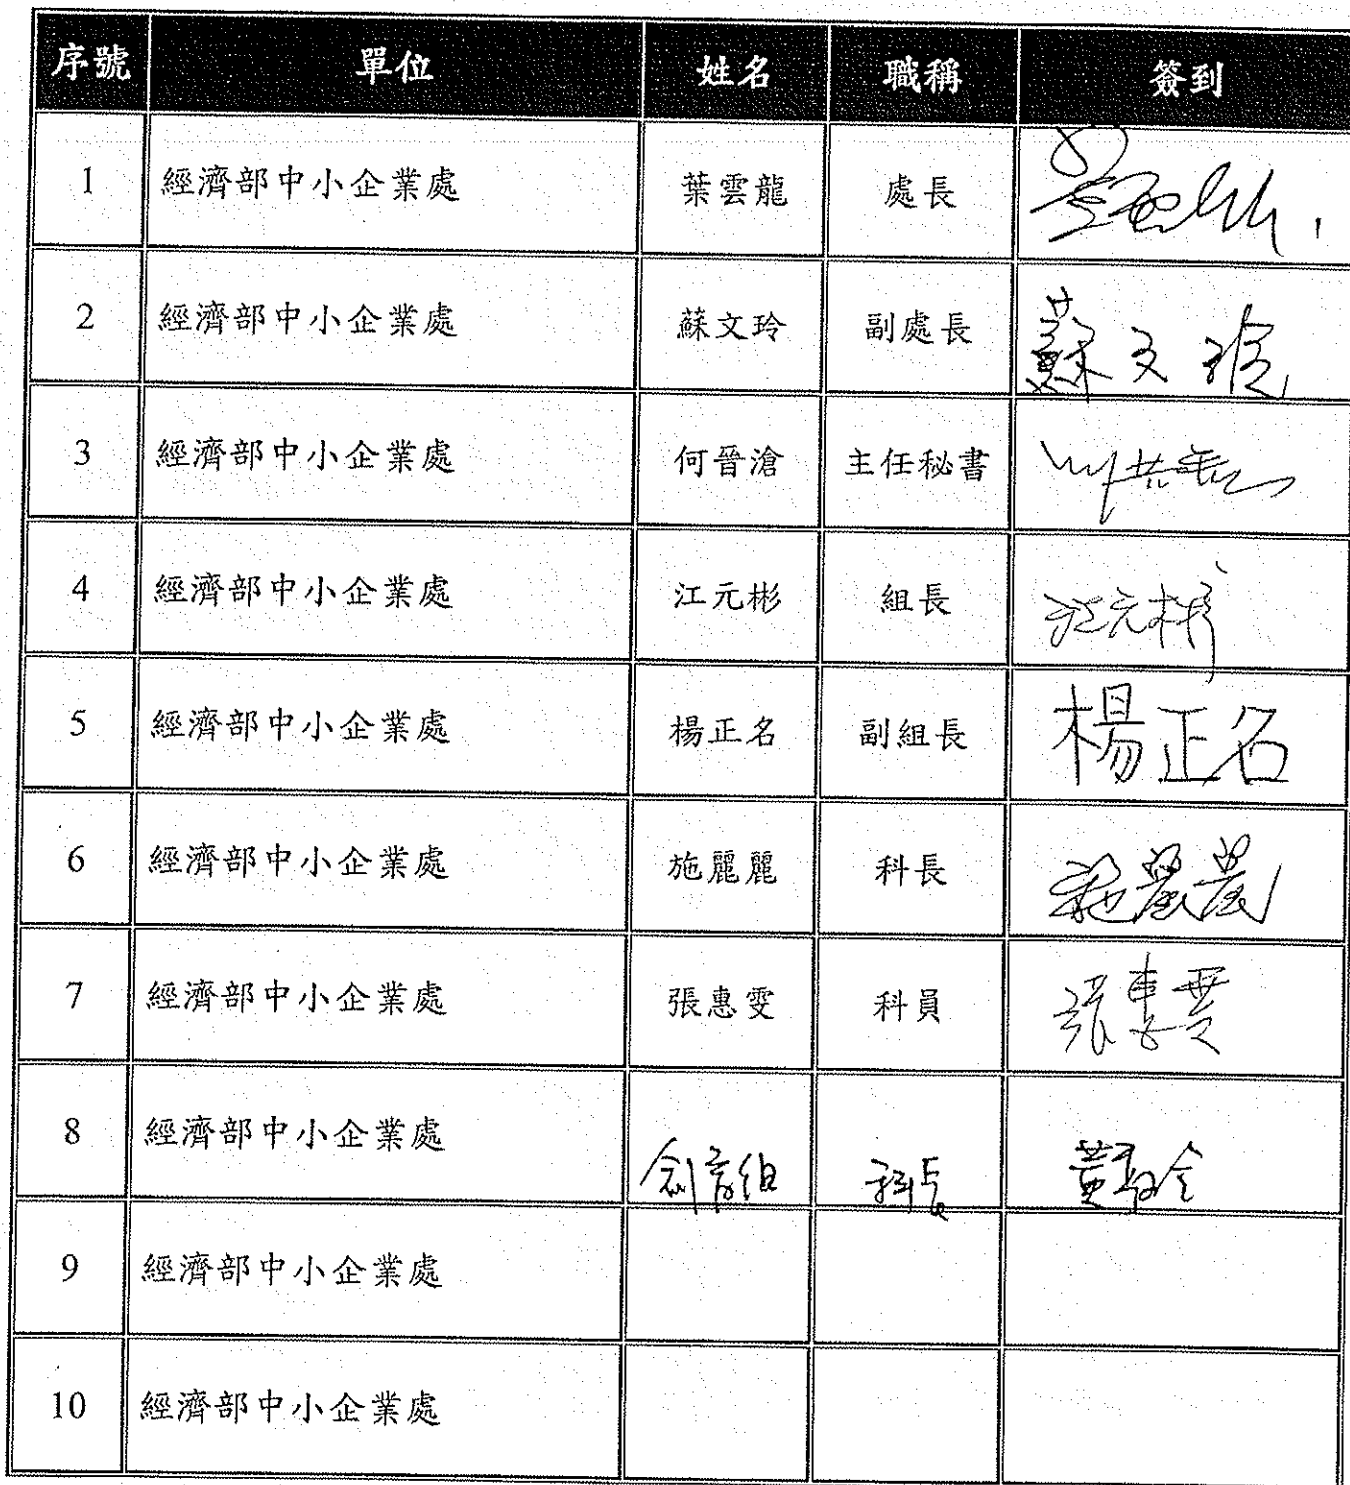 序號 單位 姓名 職稱 簽到
1 經濟部中小企業處 葉雲龍 處長
2 經濟部中小企業處 蘇文玲 副處長 蘇文玲
3 經濟部中小企業處 何晉滄 主任秘書
4 經濟部中小企業處 江元彬 組長 江元彬
5 經濟部中小企業處 楊正名 副組長 楊正名
6 經濟部中小企業處 施麗麗 科長 施麗麗
7 經濟部中小企業處 張惠雯 科員 張惠雯
8 經濟部中小企業處 創育組 科長
9 經濟部中小企業處
10 經濟部中小企業處